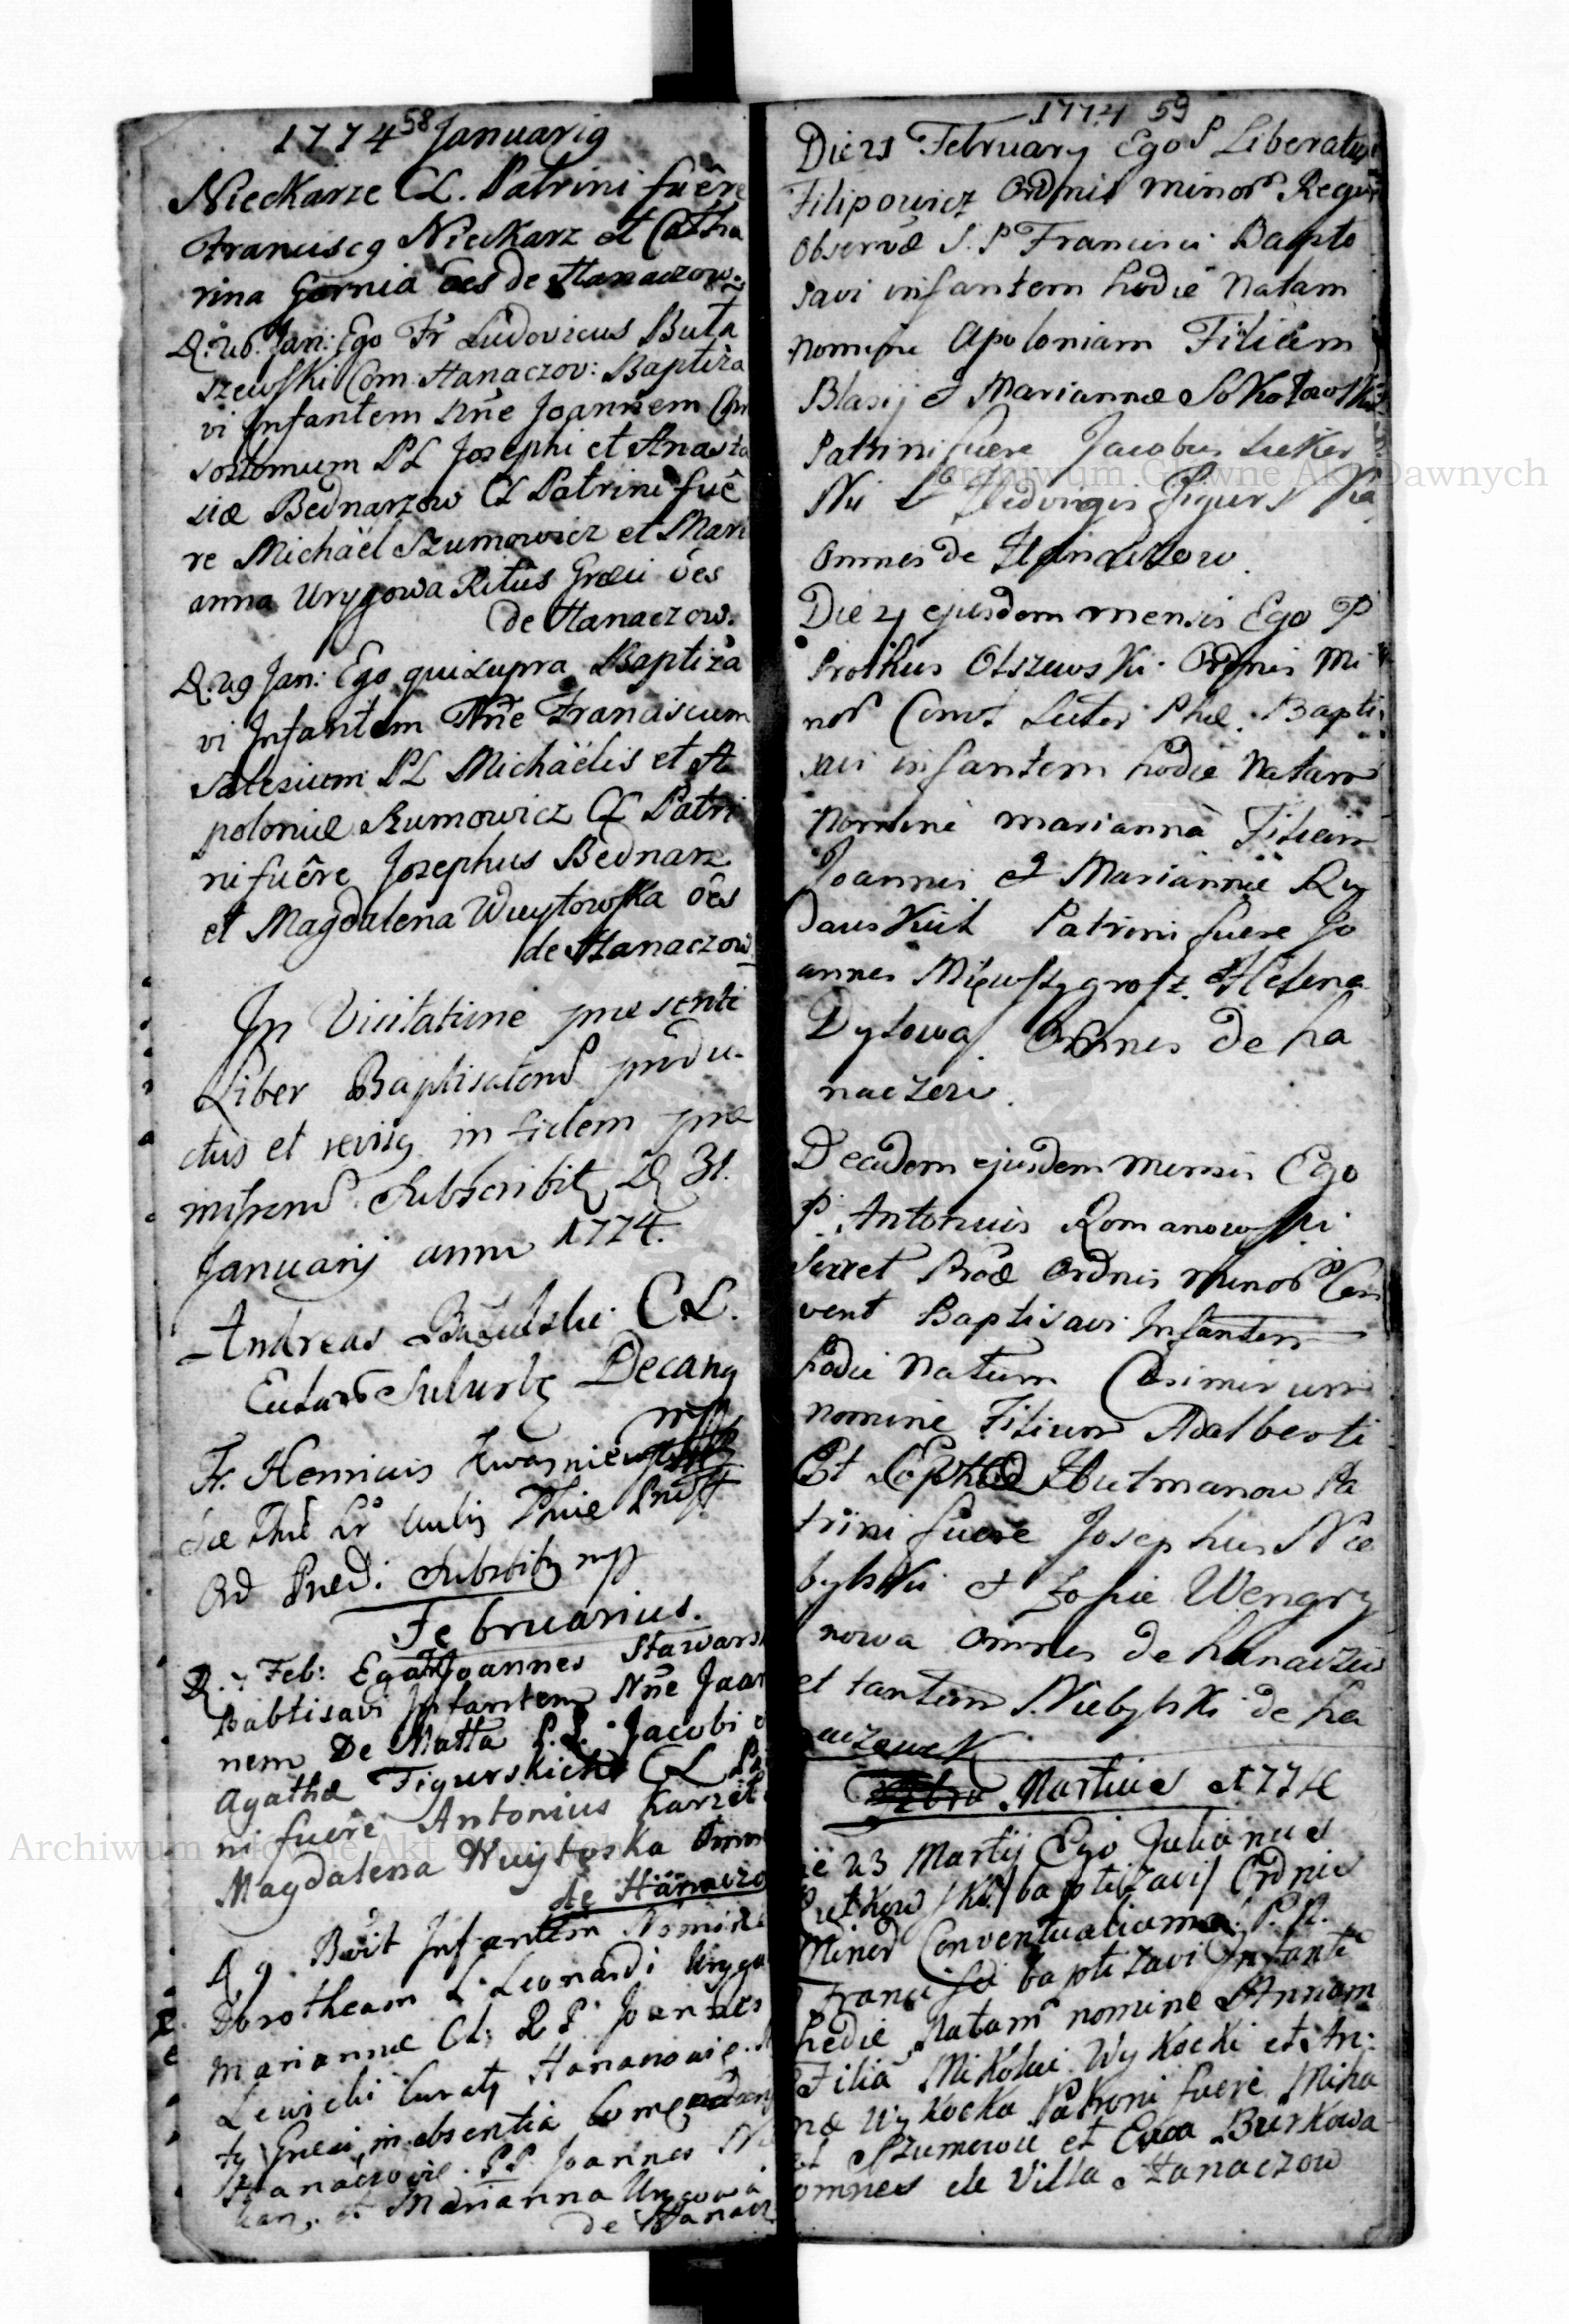 58
1774 Januarig
Nieckarze CL. Patrini fuêre
Franciscg Nieckarz et Catha
rina Gornia ôes de Hanaczow.
D. 26. Jan: Ego Fr Ludovicus Buta
szewski Com Hanaczov: Baptiza
vi Infantem Nñe Joannem Chri
sostomum PL Josephi et Anasta
siæ Bednarzow CL Patrini fuê
re Michäel Szumowicz et Mari
anna Urygowa Ritûs Græci ôes
de Hanaczow.
D. 29 Jan: Ego qui supra Baptiza
vi Infantem Nñe Franciscum
Salesium PL Michäelis et A
poloniæ Szumowicz CL Patri
ni fuêre Josephus Bednarz
et Magdalena Wuytowska ôes
de Hanaczow
In Visitatione præsenti
Liber Baptisatorum produ-
ctus et revisg in fidem præ
missorum Subscribit D 31.
Januarij anno 1774.
Andreas CL.
Decang
mp
Fr. Henricus
Ord Præd: mp
Februarius.
D. 7 Feb: Ego Joannes Stawars
Babtisavi Infantem Nñe Joan
nem De Matta P.L. Jacobi e
Agathæ Figurskich CL Pa
ni fuêre Antonius Karzet
Magdalena Wuytoska Omn
de Hanaczo
D 9. Bāvit Infantem Nomine
Dorotheam L Leonardi Uryga
Mariannæ CL: R P. Joannes
Lewicki Curatg Hanacovie.
tg Græci in absentia
Hanaczovie. PP. Joannes Ni
kan, et Marianna Urygowa
de Hanacz
1774 59
Die 21 February Ego P Liberatus
Filipowicz Ordnis minor Regu
Observæ S. P Francisci Bapti
savi infantem hodie Natam
nomine Apoloniam Filiam
Blasij et Mariannæ Sokołowski
Patrini fuere Jacobus
et Hedvigis Figurska
omnes de Hanaczow.
Die 21 ejusdem mensis Ego P
Prothus Olszewski Ordnis Mi
nor Conv Lector Phæ. Bapti
savi infantem hodie Natam
Nomine marianna Filiam
Joannis et Mariannæ Ry
dauskich Patrini fuere Jo
annes et Helena
Dylowa Omnes de ha
naczow.
D eadem ejusdem mensis Ego
P. Antonius Romanowski
Secret Proæ Ordnis minor Con
vent Baptisavi Infantem
hodie Natum Casimirum
nomine Filium Adalberti
Et Hutmanow Pa
trini fuere Josephus Nie
bylski et Zofie Wengry
nowa omnes de hanaczow
et tantum Niebylski de ha
naczowek
Martius 1774
Die 23 Martij Ego Julianus
/baptizavi/ Ordnis
Minor Conventualium P. N.
Franci sci baptizavi Infante
hodie Natam nomine Annam
Filia Mikołai Wykocki et An:
næ Wykocka Patroni fuere Micha
el Szumowic et Ewa Burkowa
omnes de Villa Hanaczow
Archiwum Główne Akt Dawnych
Archiwum Główne Akt Dawnych